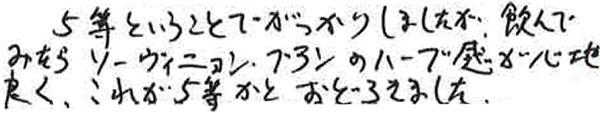 5等ということでがっかりしましたが、飲んで
みたら ソーヴィニヨン・ブランのハーブ感が心地
良く、これが5等かと おどろきました.